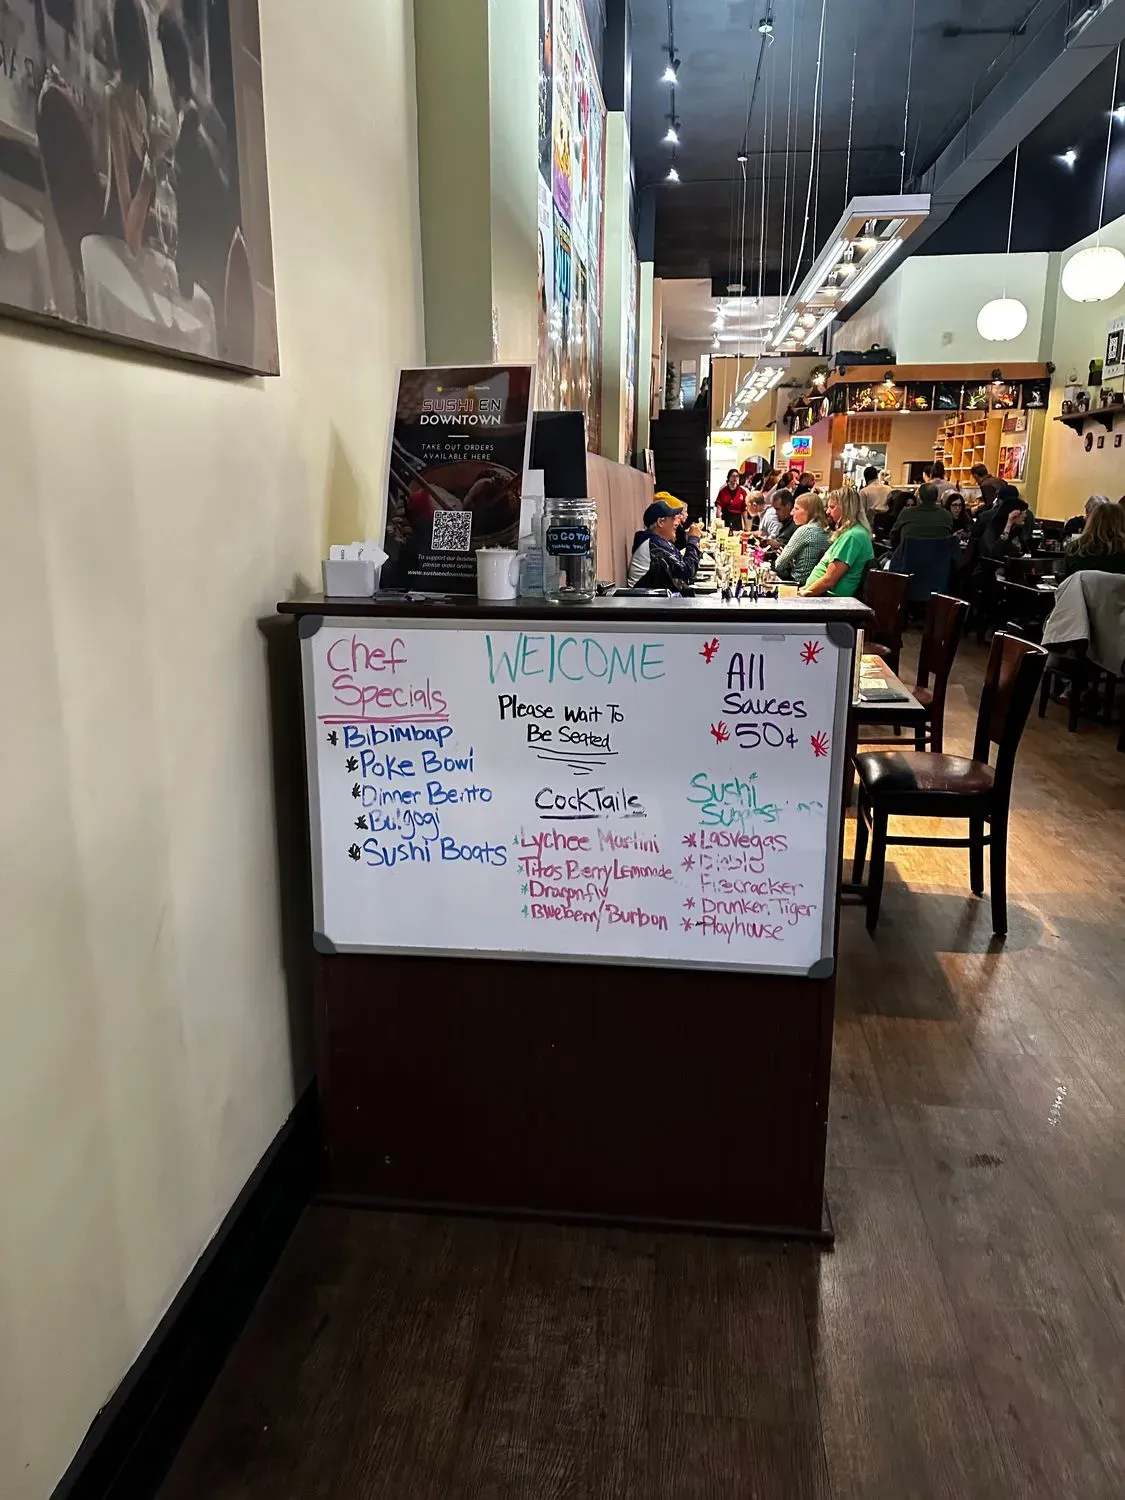 SUSHI EN
DOWNTOWN
TAKE OUT ORDERS
AVAILABLE HERE
To support our busine
please order online
www.sushiendowntown.
TO GO TIP
THANK YOU!
Chef
Specials
* Bibimbap
* Poke Bowl
* Dinner Bento
* Bulgogi
* Sushi Boats
WElCOME
Please Wait To
Be Seated
CockTails
* Lychee Martini
* Titos Berry Lemonade
* Dragonfly
* Blueberry/Burbon
All
Sauces
50¢
Sushi
Suggest
* Lasvegas
Firecracker
* Drunken Tiger
* Playhouse